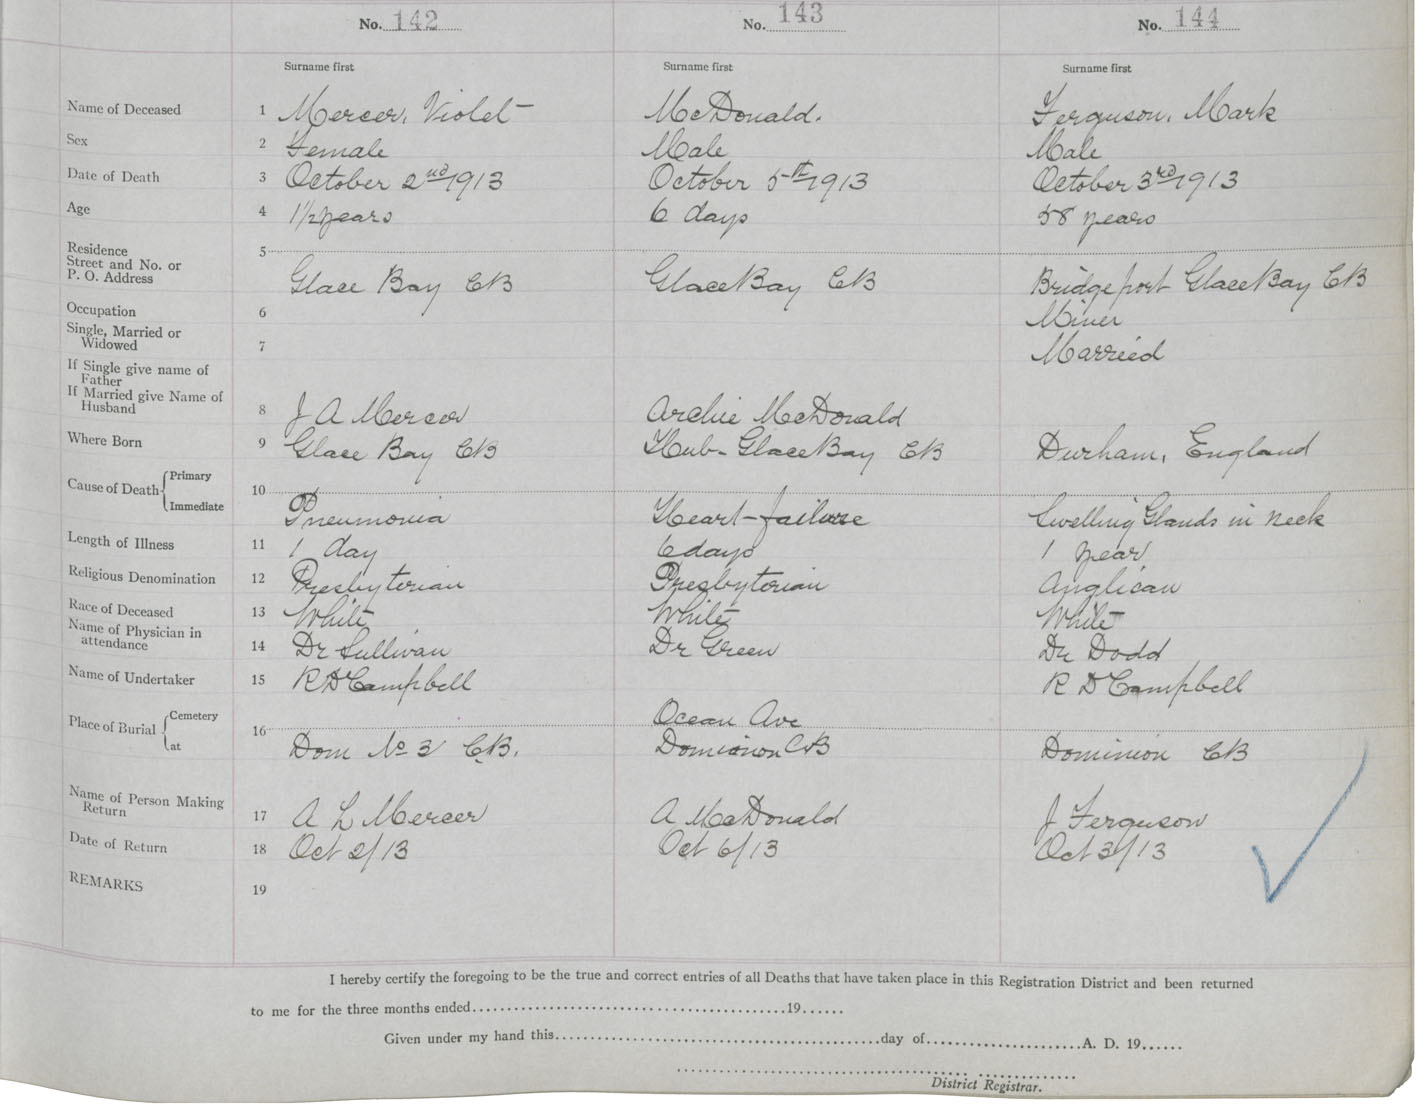 No. 142 No. 143 No. 144
Surname first Surname first Surname first
Name of Deceased 1 Mercer, Violet McDonald. Ferguson, Mark
Sex 2 Female Male Male
Date of Death 3 October 2nd 1913 October 5th 1913 October 3rd 1913
Age 4 1½ years 6 days 58 years
Residence 5
Street and No. or
P. O. Address Glace Bay CB Glace Bay CB Bridgeport Glace Bay CB
Occupation 6 Miner
Single, Married or
Widowed 7 Married
If Single give name of
Father
If Married give Name of
Husband 8 J A Mercer Archie McDonald
Where Born 9 Glace Bay CB Hub- Glace Bay CB Durham, England
Cause of Death Primary 10
Immediate Pneumonia Heart-failure Swelling Glands in neck
Length of Illness 11 1 day 6 days 1 year
Religious Denomination 12 Presbyterian Presbyterian Anglican
Race of Deceased 13 White White White
Name of Physician in
attendance 14 Dr Sullivan Dr Green Dr Dodd
Name of Undertaker 15 R D Campbell R D Campbell
Place of Burial Cemetery 16 Ocean Ave
at Dom No 3 C.B. Dominion CB Dominion CB
Name of Person Making
Return 17 A L Mercer A McDonald J Ferguson
Date of Return 18 Oct 2/13 Oct 6/13 Oct 3/13
REMARKS 19
I hereby certify the foregoing to be the true and correct entries of all Deaths that have taken place in this Registration District and been returned
to me for the three months ended 19
Given under my hand this day of A. D. 19
District Registrar.